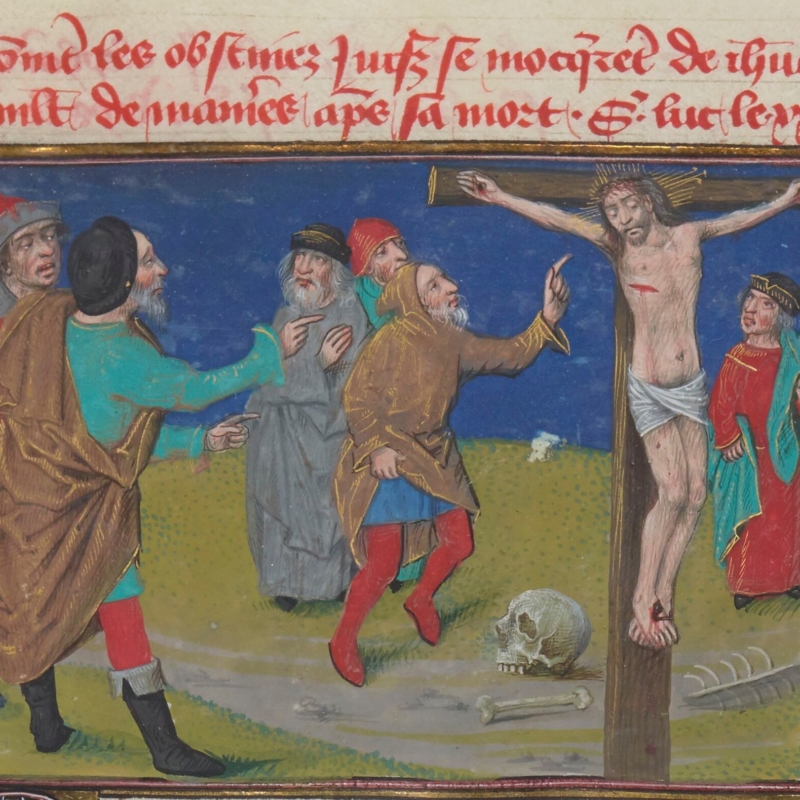 om̄e les obstinez Juifz se mocq̄rēt de ih̄u
mlt de manieres ap̄s sa mort. S. luc le xx